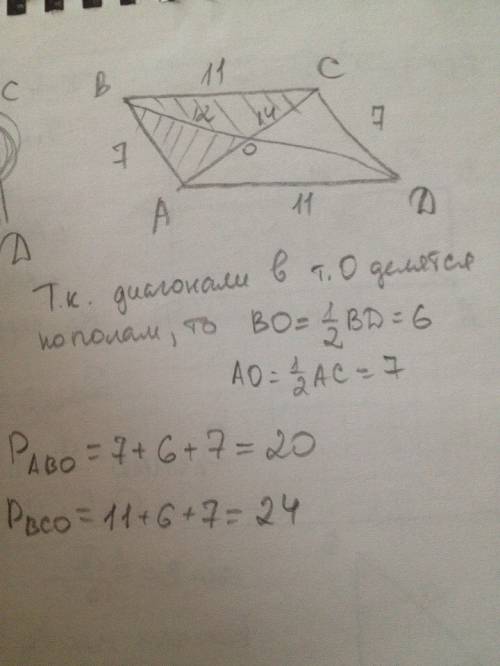 11
B
C
C
12
14
7
7
O
A
11
D
D
Т.к. диагонали в т.О делятся
пополам, то BO = 1/2 BD = 6
AO = 1/2 AC = 7
P_ABO = 7 + 6 + 7 = 20
P_BCO = 11 + 6 + 7 = 24